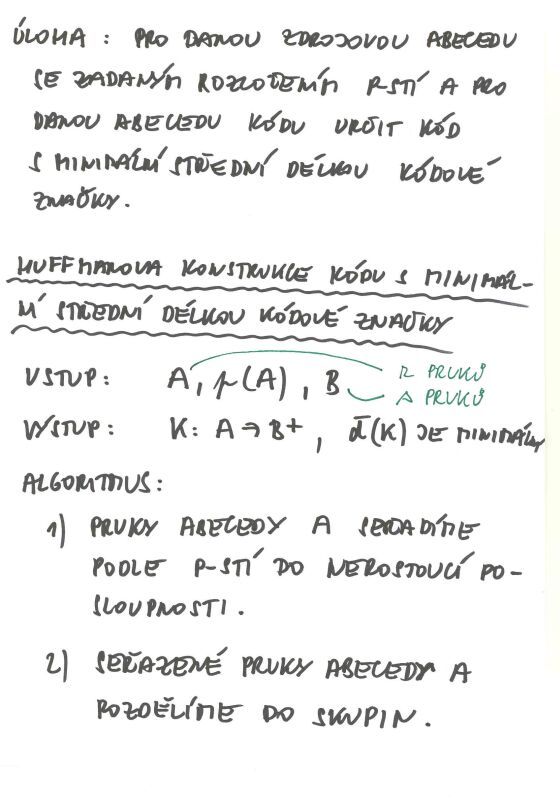 ÚLOHA : PRO DANOU ZDROJOVOU ABECEDU
SE ZADANÝM ROZLOŽENÍM P-STÍ A PRO
DANOU ABECEDU KÓDU URČIT KÓD
S MINIMÁLNÍ STŘEDNÍ DÉLKOU KÓDOVÉ
ZNAČKY.
HUFFMANOVA KONSTRUKCE KÓDU S MINIMÁL-
NÍ STŘEDNÍ DÉLKOU KÓDOVÉ ZNAČKY
VSTUP: A, p(A), B r PRVKŮ
s PRVKŮ
VÝSTUP: K: A → B+, d̄(K) JE MINIMÁLNÍ
ALGORITMUS:
1) PRVKY ABECEDY A SEŘADÍME
PODLE P-STÍ DO NEROSTOUCÍ PO-
SLOUPNOSTI.
2) SEŘAZENÉ PRVKY ABECEDY A
ROZDĚLÍME DO SKUPIN.